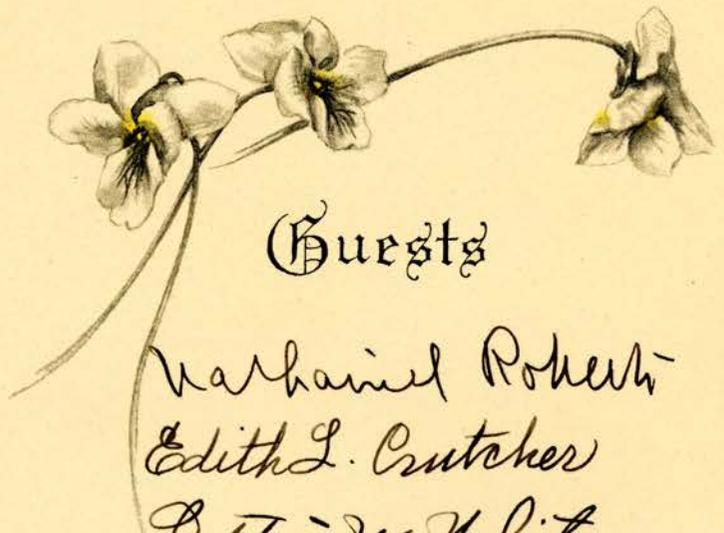 Guests
Nathaniel Roberts
Edith L. Crutcher